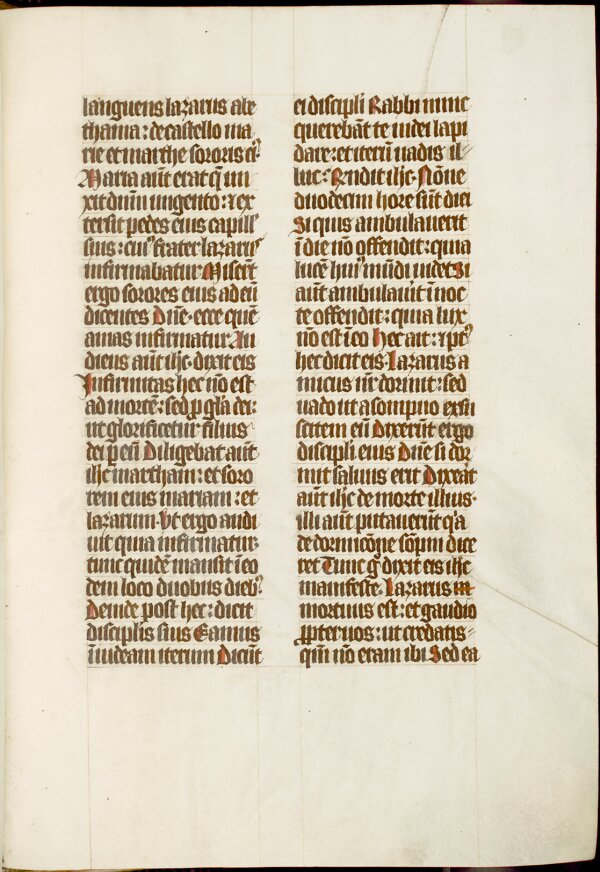 languens lazarus a be
thania : de castello ma
rie et marthe sororis ei⁹
Maria aūt erat q̄ un
xit dūm ungento : ⁊ ex
tersit pedes eius capill'
suis : cui⁹ frater lazarus
infirmabatur Miserūt
ergo sorores eius ad eū
dicentes Dn̄e · ecce quē
amas infirmatur Au
diens aūt ih̄c · dixit eis
Infirmitas hec nō est
ad mortē : sed ꝓ gl̄a dei :
ut glorificetur filius
dei p̄ eū Diligebat aūt
ih̄c martham : et soro
rem eius mariam : et
lazarum · Ut ergo audi
uit quia infirmatur
tunc quidē mansit ī eo
dem loco duobus dieb⁹
Deinde post hec : dicit
disciplis suis Eamus
ī iudeam iterum Dicūt
ei discipli Rabbi nunc
querebāt te iudei lapi
dare : et iterū uadis il-
luc · Rn̄dit ih̄c · Nōne
duodecim hore sūt diei
Si quis ambulauerit
ī die nō offendit : quia
lucē hui⁹ mūdi uidet Si
aūt ambulau'it ī noc
te offendit : quia lux
nō est ī eo Hec ait : ⁊ pt⁹
hec dicit eis Lazarus a
micus nr̄ dormit : sed
uado ut a sompno exsu
scitem eū Dixerūt ergo
discipli eius Dn̄e si dor
mit saluus erit Dixerat
aūt ih̄c de morte illius ·
illi aūt putauerūt q'a
de dormicōne sōpni dice
ret Tunc g° dixit eis ih̄c
manifeste · Lazarus m
mortuus est : et gaudio
ꝓpter uos : ut credatis
qm̄ nō eram ibi Sed ea